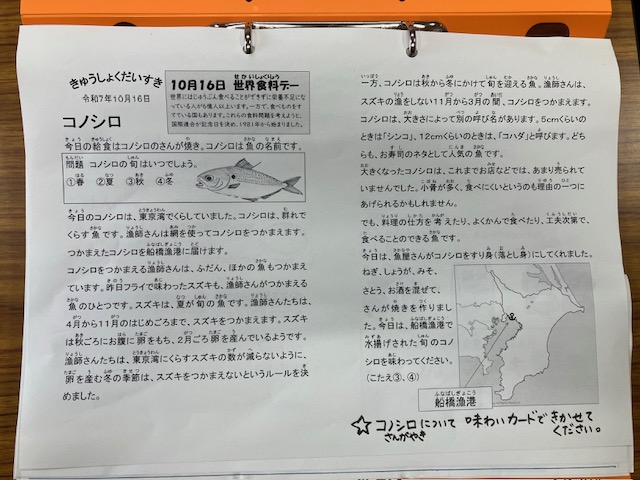 きゅうしょくだいすき
令和7年10月16日
コノシロ
10月16日 世界食料デー
世界にはじゅうぶん食べることができずに栄養不足になっ
ている人が
います。一方で、食べものをすて
ている国もあります。これらの食料問題を考えようと、
国際連合が記念日を決め、1981年から始まりました。
今日の給食はコノシロのさんが焼き。コノシロは魚の名前です。
問題 コノシロの旬はいつでしょう。
①春 ②夏 ③秋 ④冬
今日のコノシロは、東京湾でくらしていました。コノシロは、群れで
くらす魚です。漁師さんは網を使ってコノシロをつかまえます。
つかまえたコノシロを船橋漁港に届けます。
コノシロをつかまえる漁師さんは、ふだん、ほかの魚もつかまえ
ています。昨日フライで味わったスズキも、漁師さんがつかまえる
魚のひとつです。スズキは、夏が旬の魚です。漁師さんたちは、
4月から11月のはじめごろまで、スズキをつかまえます。スズキ
は秋ごろにお腹に卵をもち、2月ごろ卵を産んでいるようです。
漁師さんたちは、東京湾にくらすスズキの数が減らないように、
卵を産む冬の季節は、スズキをつかまえないというルールを決
めました。
一方、コノシロは秋から冬にかけて旬を迎える魚。漁師さんは、
スズキの漁をしない11月から3月の間、コノシロをつかまえます。
コノシロは、大きさによって別の呼び名があります。5cmくらいの
ときは「シンコ」、12cmくらいのときは、「コハダ」と呼びます。どち
らも、お寿司のネタとして人気の魚です。
大きくなったコノシロは、これまでお店などでは、あまり売られて
いませんでした。小骨が多く、食べにくいというのも理由の一つに
あげられるかもしれません。
でも、料理の仕方を考えたり、よくかんで食べたり、工夫次第で、
食べることのできる魚です。
今日は、魚屋さんがコノシロをすり身(落とし身)にしてくれました。
ねぎ、しょうが、みそ、
さとう、お酒を混ぜて、
さんが焼きを作りまし
た。今日は、船橋漁港で
水揚げされた旬のコノ
シロを味わってください。
(こたえ③、④)
ふなばしぎょこう
船橋漁港
☆コノシロについて 味わいカードで きかせて
さんがやき ください。